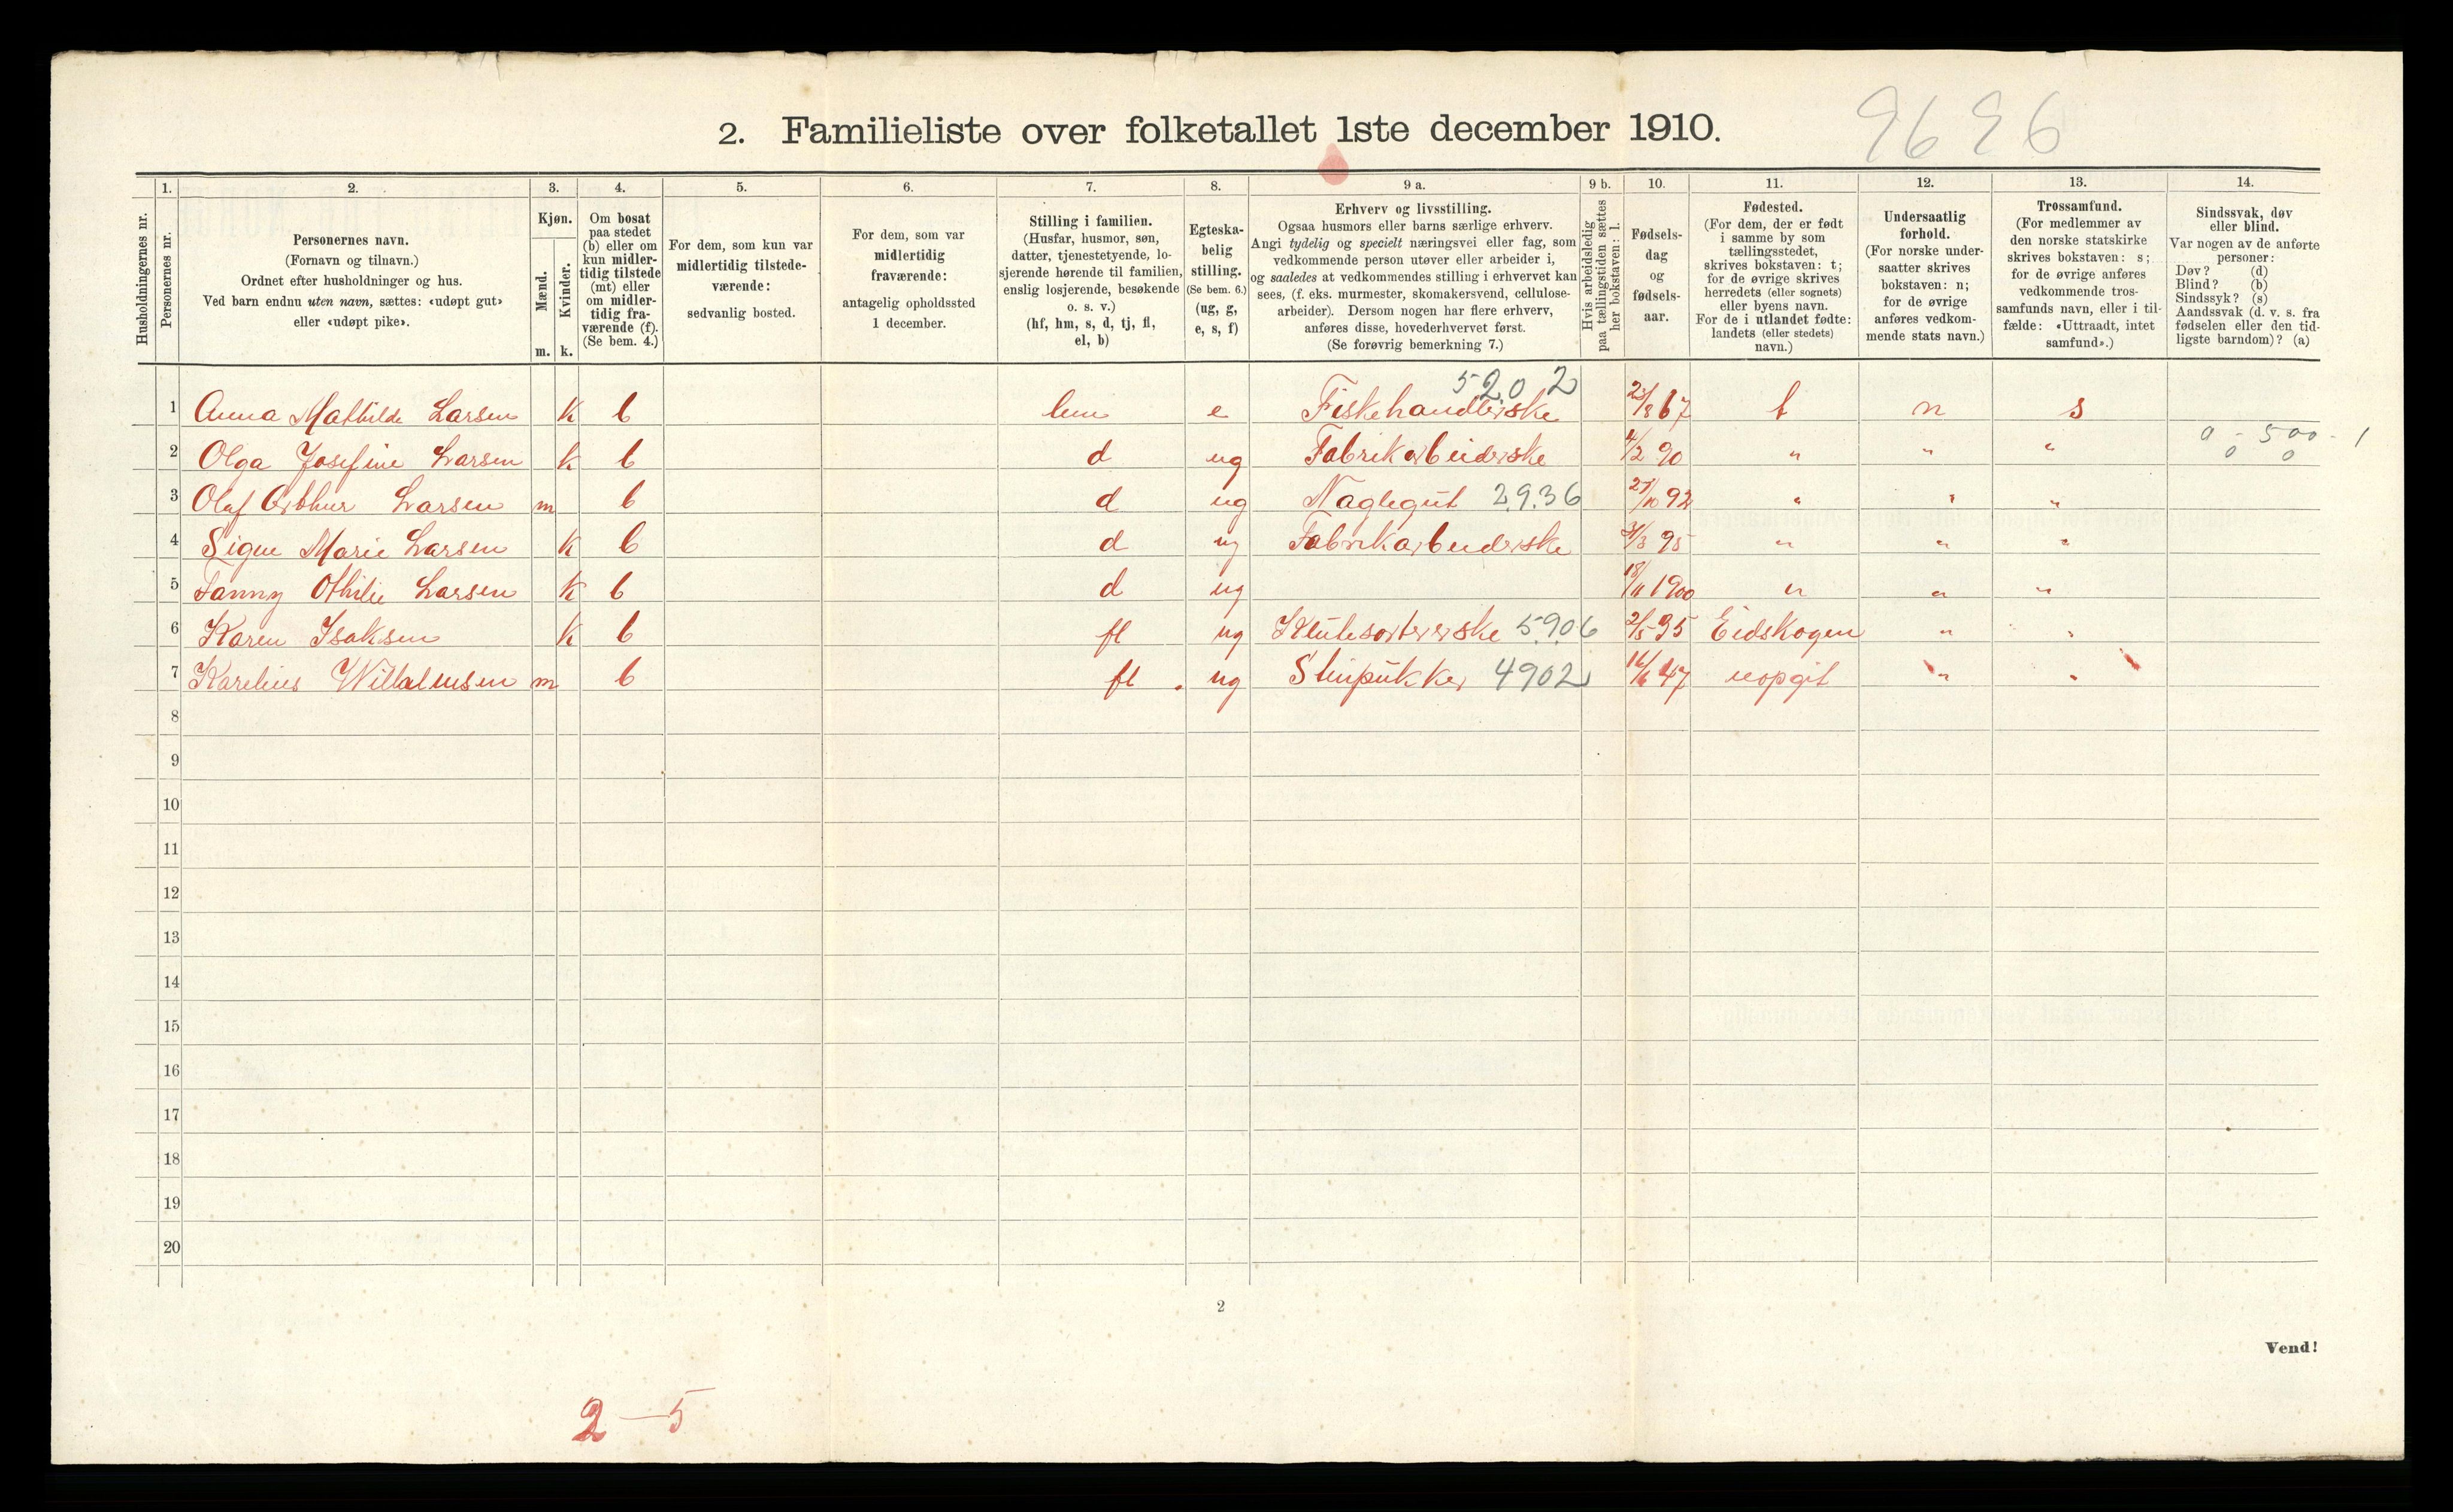 2. Familieliste over folketallet 1ste december 1910.
9696
Husholdningernes nr.
1.
Personernes nr.
2.
Personernes navn.
(Fornavn og tilnavn.)
Ordnet efter husholdninger og hus.
Ved barn endnu uten navn, sættes: «udøpt gut»
eller «udøpt pike».
3.
Kjøn.
Mænd.
Kvinder.
m. k.
4.
Om bosat
paa stedet
(b) eller om
kun midler-
tidig tilstede
(mt) eller
om midler-
tidig fra-
værende (f).
(Se bem. 4.)
5.
For dem, som kun var
midlertidig tilstede-
værende:
sedvanlig bosted.
6.
For dem, som var
midlertidig
fraværende:
antagelig opholdssted
1 december.
7.
Stilling i familien.
(Husfar, husmor, søn,
datter, tjenestetyende, lo-
sjerende hørende til familien,
enslig losjerende, besøkende
o. s. v.)
(hf, hm, s, d, tj, fl,
el, b)
8.
Egteska-
belig
stilling.
(Se bem. 6.)
(ug, g,
e, s, f)
9 a.
Erhverv og livsstilling.
Ogsaa husmors eller barns særlige erhverv.
Angi tydelig og specielt næringsvei eller fag, som
vedkommende person utøver eller arbeider i,
og saaledes at vedkommendes stilling i erhvervet kan
sees, (f. eks. murmester, skomakersvend, cellulose-
arbeider). Dersom nogen har flere erhverv,
anføres disse, hovederhvervet først.
(Se forøvrig bemerkning 7.)
9 b.
Hvis arbeidsledig
paa tællingstiden sættes
her bokstaven: l.
10.
Fødsels-
dag
og
fødsels-
aar.
11.
Fødested.
(For dem, der er født
i samme by som
tællingsstedet,
skrives bokstaven: t;
for de øvrige skrives
herredets (eller sognets)
eller byens navn.
For de i utlandet fødte:
landets (eller stedets)
navn.)
12.
Undersaatlig
forhold.
(For norske under-
saatter skrives
bokstaven: n;
for de øvrige
anføres vedkom-
mende stats navn.)
13.
Trossamfund.
(For medlemmer av
den norske statskirke
skrives bokstaven: s;
for de øvrige anføres
vedkommende tros-
samfunds navn, eller i til-
fælde: «Uttraadt, intet
samfund».)
14.
Sindssvak, døv
eller blind.
Var nogen av de anførte
personer:
Døv? (d)
Blind? (b)
Sindssyk? (s)
Aandssvak (d. v. s. fra
fødselen eller den tid-
ligste barndom)? (a)
5202
1 Anna Mathilde Larsen k b hm e Fiskehandlerske 67 t n s
0 - 500 - 1
2 Olga Josefine Larsen k b d ug Fabrikarbeiderske 4/2 90 " " " 0 0
3 Olaf Arthur Larsen m b d ug Naglegut 2936 27/10 92 " " "
4 Signe Marie Larsen k b d ug Fabrikarbeiderske 95 " " "
5 Fanny Othilie Larsen k b d ug 18/11 1900 " " "
6 Karen Isaksen k b fl ug Klutesortererske 5906 2/5 95 Eidskogen " "
7 Karelius m b fl ug Stinpukker 4902 47 uopgit " "
8
9
10
11
12
13
14
15
16
17
18
19
20
2
Vend!
2 - 5